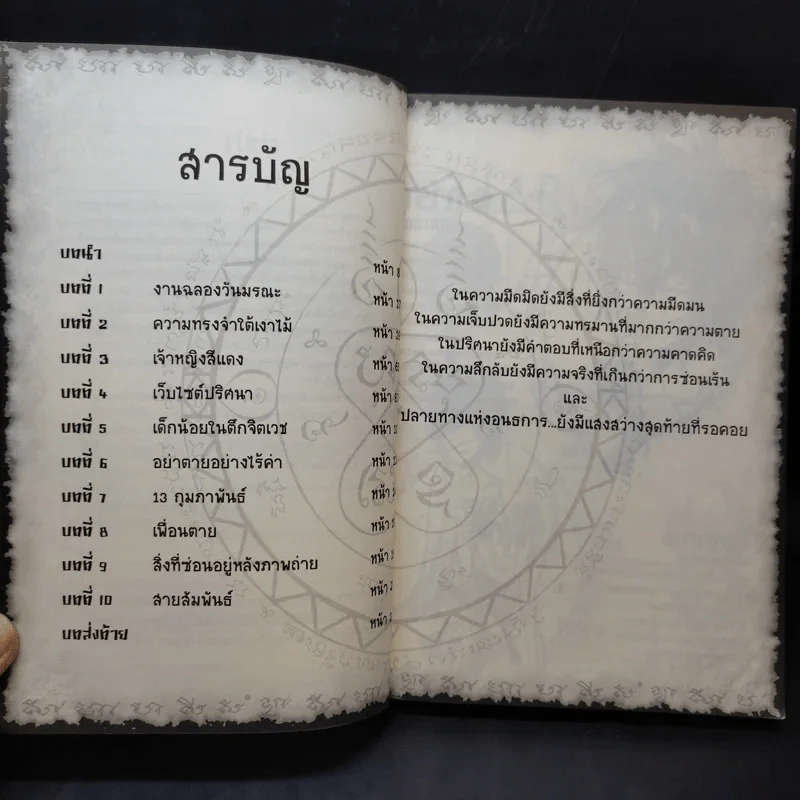 สารบัญ
บทนำ หน้า 8
บทที่ 1 งานฉลองวันมรณะ หน้า
บทที่ 2 ความทรงจำใต้เงาไม้ หน้า
บทที่ 3 เจ้าหญิงสีแดง หน้า
บทที่ 4 เว็บไซต์ปริศนา หน้า
บทที่ 5 เด็กน้อยในตึกจิตเวช หน้า
บทที่ 6 อย่าตายอย่างไร้ค่า หน้า
บทที่ 7 13 กุมภาพันธ์ หน้า
บทที่ 8 เพื่อนตาย หน้า
บทที่ 9 สิ่งที่ซ่อนอยู่หลังภาพถ่าย หน้า
บทที่ 10 สายสัมพันธ์ หน้า
บทส่งท้าย หน้า
ในความมืดมิดยังมีสิ่งที่ยิ่งกว่าความมืดมน
ในความเจ็บปวดยังมีความทรมานที่มากกว่าความตาย
ในปริศนายังมีคำตอบที่เหนือกว่าความคาดคิด
ในความลึกลับยังมีความจริงที่เกินกว่าการซ่อนเร้น
และ
ปลายทางแห่งอนธการ...ยังมีแสงสว่างสุดท้ายที่รอคอย